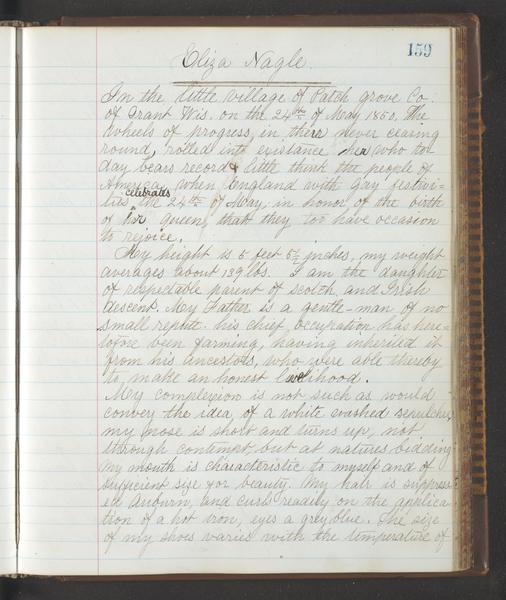 159
Eliza Nagle.
In the little village of Patch grove Co.
of Grant Wis. on the 24th of May 1850. The
wheels of progress, in their never ceasing
round, rolled into existance her who to
day bears record & little think the people of
America, when England with gay festivi-
ties celebrates the 24th of May, in honor of the birth
of her queen, that they too have occasion
to rejoice.
My height is 5 feet 5½ inches, my weight
averages about 139 lbs. I am the daughter
of respectable parent of scotch, and Irish
descent. My Father is a gentle-man of no
small repute. his chief occupation has here-
tofore been farming, having inherited it
from his ancestors, who were able thereby
to make an honest livelihood.
My complexion is not such as would
convey the idea, of a white washed sepulcher,
my nose is short and turns up, not
through contempt, but at natures bidding
my mouth is characteristic to myself and of
sufficient size for beauty. My hair is suppress-
ed Auburn, and curls readily on the applica-
tion of a hot iron, eyes a grey blue. The size
of my shoes varies with the temperature of